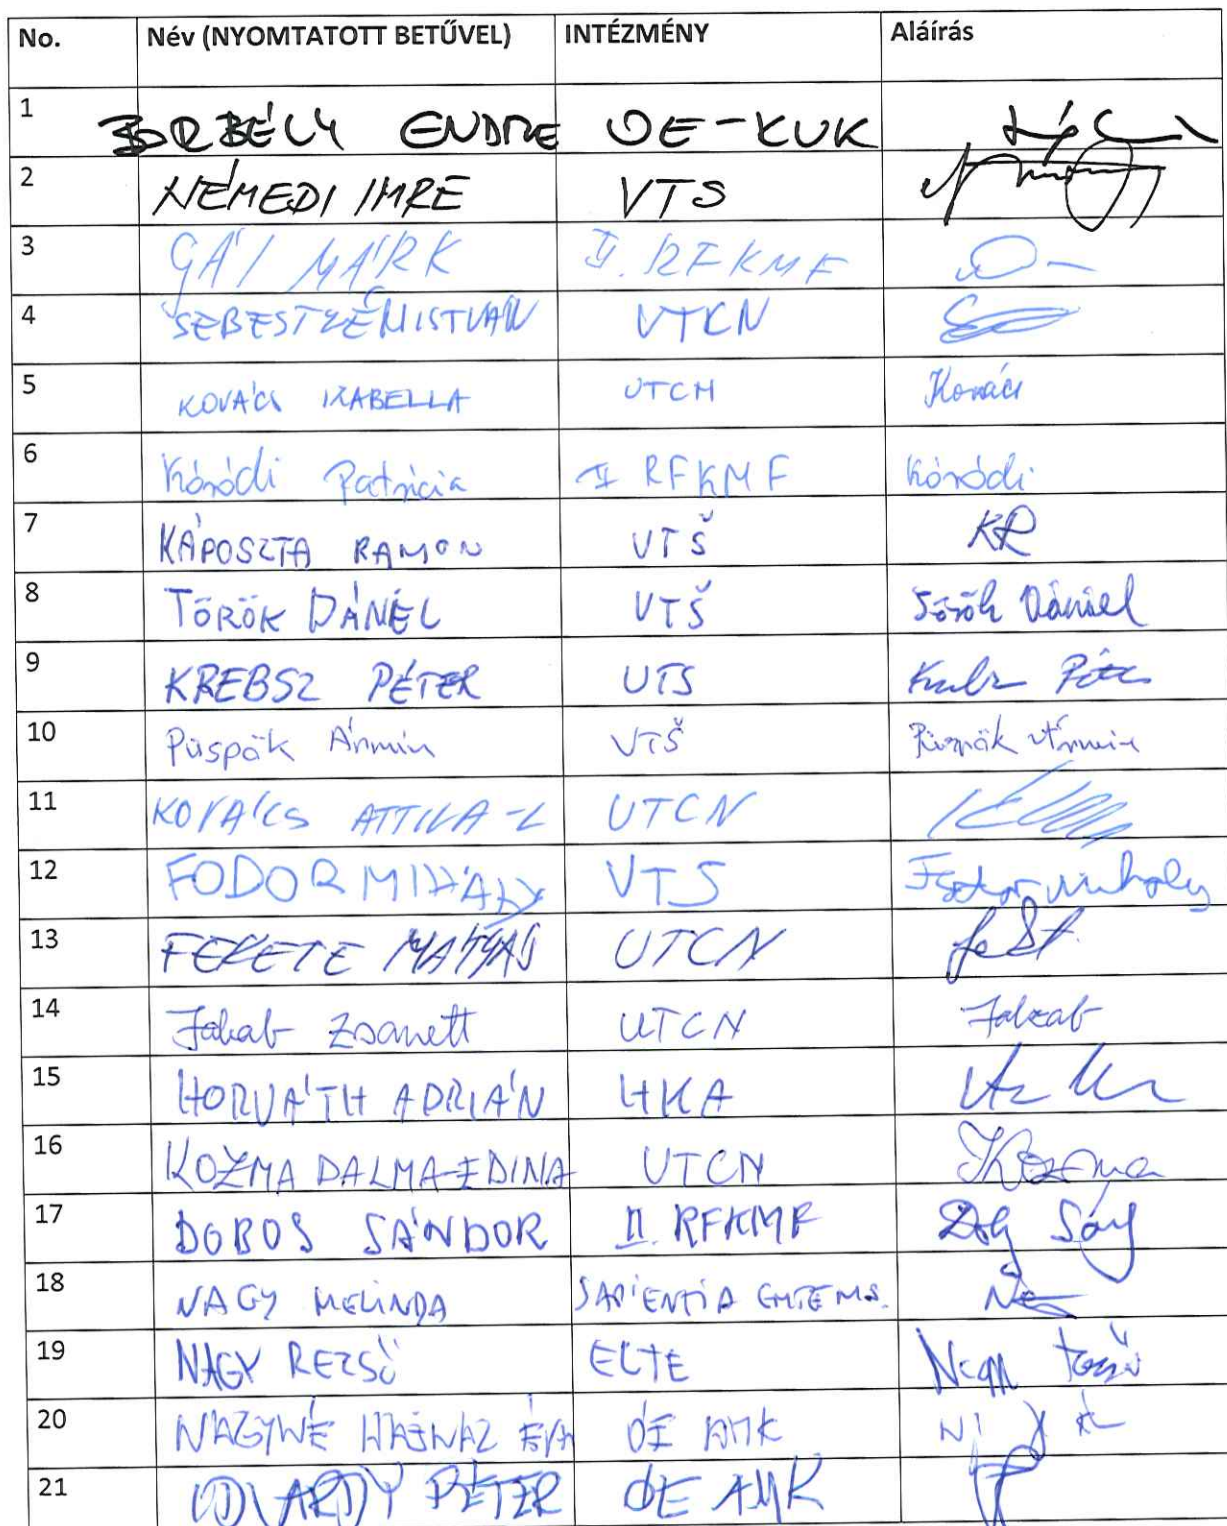 No. Név (NYOMTATOTT BETŰVEL) INTÉZMÉNY Aláírás
1 BORBÉLY ENDRE OE-KVK
2 NÉMEDI IMRE VTS
3 GÁL MÁRK II. RFKMF
4 SEBESTYÉN ISTVÁN UTCN
5 KOVÁCS IZABELLA UTCN Kovács
6 Kóródi Patrícia II RFKMF Kóródi
7 KÁPOSZTA RAMON VTŠ KR
8 TÖRÖK DÁNÉL VTŠ Török Dániel
9 KREBSZ PÉTER VTS
10 Püspök Ármin VTŠ Püspök Ármin
11 KOVÁCS ATTILA-L UTCN
12 FODOR MIHÁLY VTS Fodor Mihály
13 FEKETE MÁTYÁS UTCN
14 Jakab Zsanett UTCN Jakab
15 HORVÁTH ADRIÁN HKA
16 KOZMA DALMA-EDINA UTCN Kozma
17 DOBOS SÁNDOR II. RFKMF
18 NAGY MELINDA SAPIENTIA EMTE MS.
19 NAGY REZSŐ ELTE
20 NAGYNÉ HAJNAL ÉVA ÓE AMK
21 UDVARDY PÉTER ÓE AMK